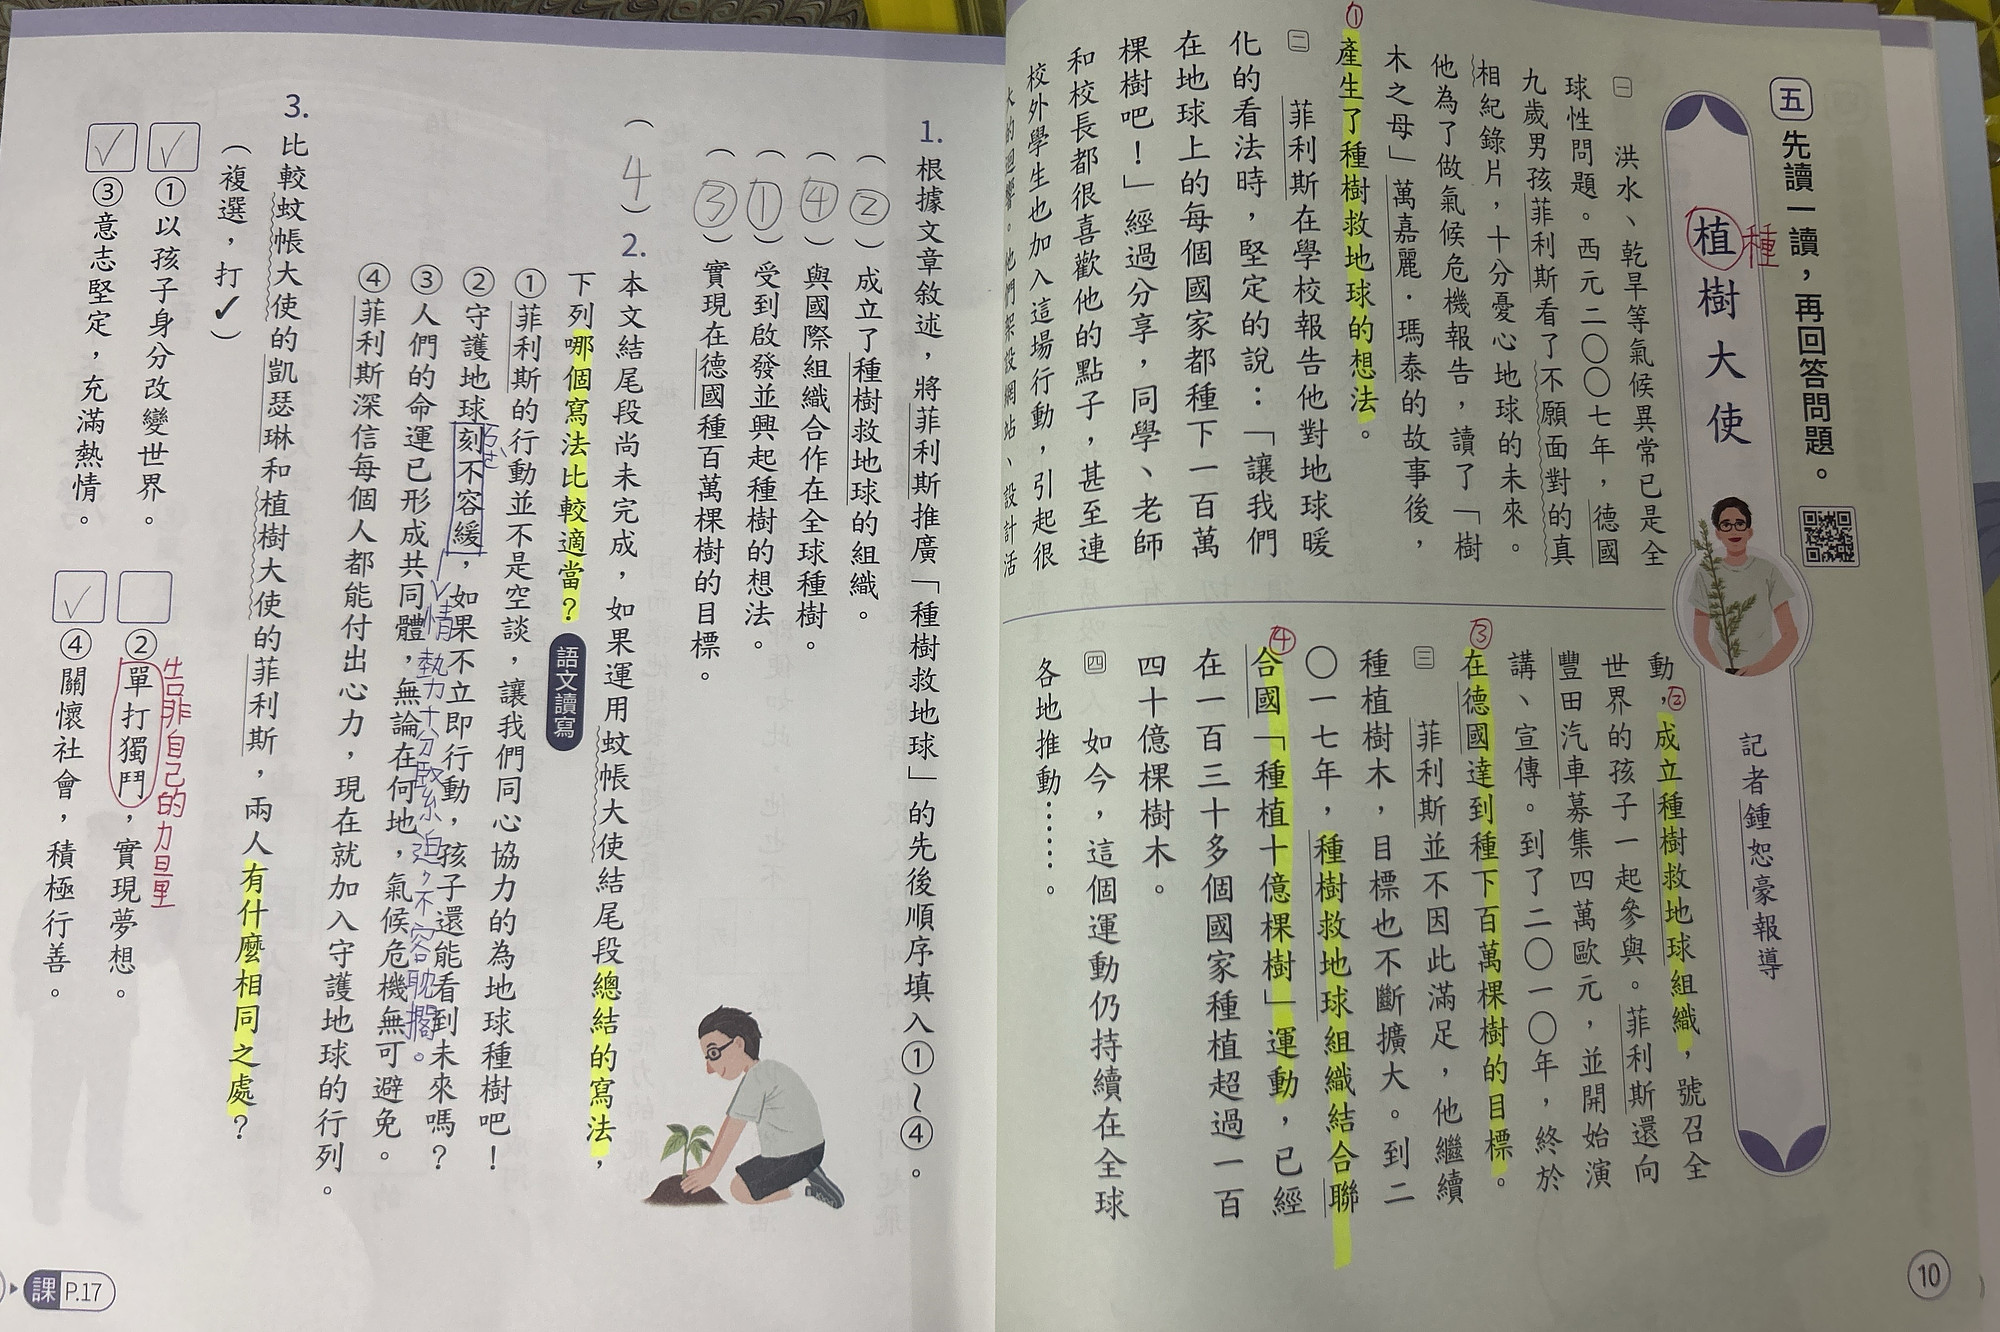 五 先讀一讀，再回答問題。
植樹大使
種
記者鍾恕豪報導
一 洪水、乾旱等氣候異常已是全
球性問題。西元二〇〇七年，德國
九歲男孩菲利斯看了不願面對的真
相紀錄片，十分憂心地球的未來。
他為了做氣候危機報告，讀了「樹
木之母」萬嘉麗．瑪泰的故事後，
①
產生了種樹救地球的想法。
二 菲利斯在學校報告他對地球暖
化的看法時，堅定的說：「讓我們
在地球上的每個國家都種下一百萬
棵樹吧！」經過分享，同學、老師
和校長都很喜歡他的點子，甚至連
校外學生也加入這場行動，引起很
大的迴響。他們架設網站、設計活
動，②成立種樹救地球組織，號召全
世界的孩子一起參與。菲利斯還向
豐田汽車募集四萬歐元，並開始演
講、宣傳。到了二〇一〇年，終於
③
在德國達到種下百萬棵樹的目標。
三 菲利斯並不因此滿足，他繼續
種植樹木，目標也不斷擴大。到二
〇一七年，種樹救地球組織結合聯
④
合國「種植十億棵樹」運動，已經
在一百三十多個國家種植超過一百
四十億棵樹木。
四 如今，這個運動仍持續在全球
各地推動……。
10
1. 根據文章敘述，將菲利斯推廣「種樹救地球」的先後順序填入①～④。
（②）成立了種樹救地球的組織。
（④）與國際組織合作在全球種樹。
（①）受到啟發並興起種樹的想法。
（③）實現在德國種百萬棵樹的目標。
（4）2. 本文結尾段尚未完成，如果運用蚊帳大使結尾段總結的寫法，
下列哪個寫法比較適當？ 語文讀寫
①菲利斯的行動並不是空談，讓我們同心協力的為地球種樹吧！
②守護地球刻不容緩，如果不立即行動，孩子還能看到未來嗎？
ㄎㄜˋ
情勢十分緊迫，不容耽擱。
③人們的命運已形成共同體，無論在何地，氣候危機無可避免。
④菲利斯深信每個人都能付出心力，現在就加入守護地球的行列。
3. 比較蚊帳大使的凱瑟琳和植樹大使的菲利斯，兩人有什麼相同之處？
（複選，打✓）
✓ ①以孩子身分改變世界。
②單打獨鬥，實現夢想。
✓ ③意志堅定，充滿熱情。
✓ ④關懷社會，積極行善。
課 P.17